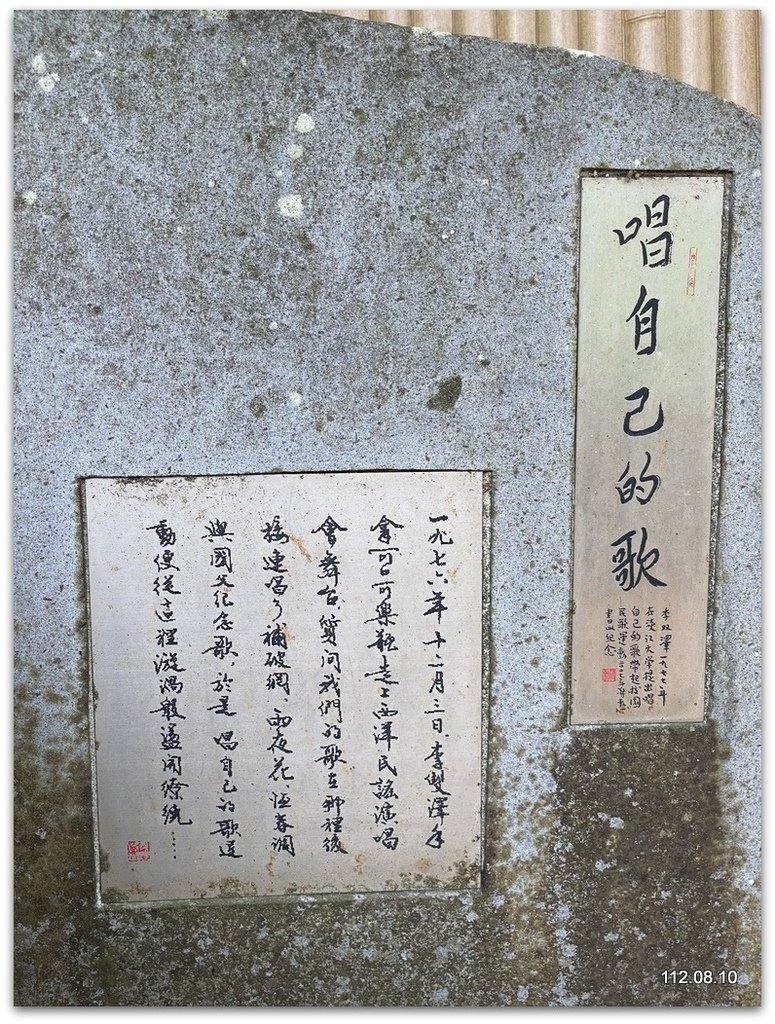 唱自己的歌
李双澤一九七七年
在淡江大学提出唱
自己的歌帶起我國
民歌運動三十年
書以紀念
一九七六年十二月三日,李雙澤手
拿可口可樂瓶走上西洋民謠演唱
會舞台,質問我們的歌在那裡後
接連唱了補破網、雨夜花、恒春調
與國父紀念歌,於是 唱自己的歌運
動便從這裡漩渦般盪開繚繞……
112.08.10